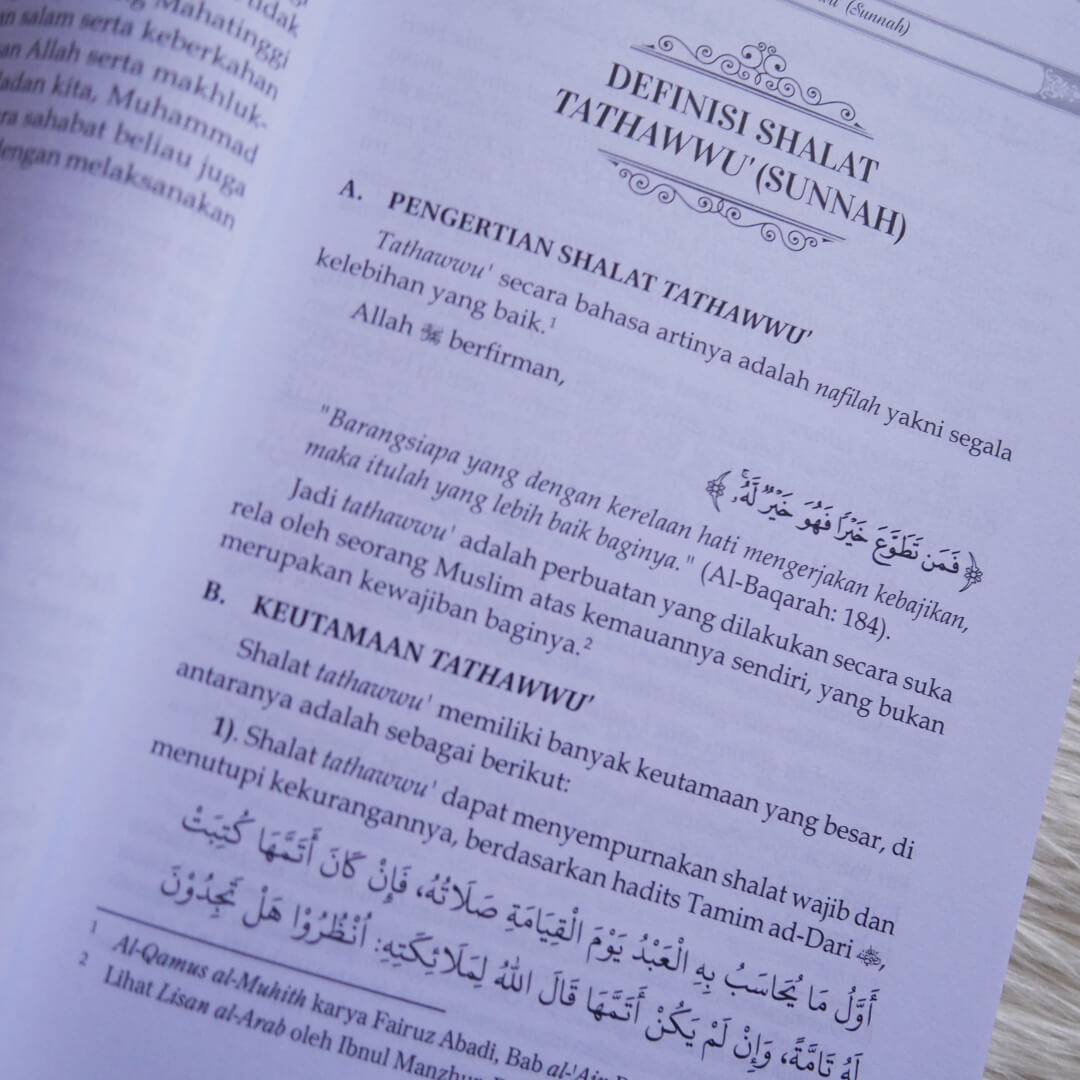 tidak
Mahatinggi
salam serta keberkahan
Allah serta makhluk-
kita, Muhammad
sahabat beliau juga
dengan melaksanakan
(Sunnah)
DEFINISI SHALAT
TATHAWWU' (SUNNAH)
A. PENGERTIAN SHALAT TATHAWWU'
Tathawwu' secara bahasa artinya adalah nafilah yakni segala
kelebihan yang baik.¹
Allah ﷻ berfirman,
﴿فَمَن تَطَوَّعَ خَيْرًا فَهُوَ خَيْرٌ لَّهُۥ ۚ﴾
"Barangsiapa yang dengan kerelaan hati mengerjakan kebajikan,
maka itulah yang lebih baik baginya." (Al-Baqarah: 184).
Jadi tathawwu' adalah perbuatan yang dilakukan secara suka
rela oleh seorang Muslim atas kemauannya sendiri, yang bukan
merupakan kewajiban baginya.²
B. KEUTAMAAN TATHAWWU'
Shalat tathawwu' memiliki banyak keutamaan yang besar, di
antaranya adalah sebagai berikut:
1). Shalat tathawwu' dapat menyempurnakan shalat wajib dan
menutupi kekurangannya, berdasarkan hadits Tamim ad-Dari ﷺ,
أَوَّلُ مَا يُحَاسَبُ بِهِ الْعَبْدُ يَوْمَ الْقِيَامَةِ صَلَاتُهُ، فَإِنْ كَانَ أَتَمَّهَا كُتِبَتْ
لَهُ تَامَّةً، وَإِنْ لَمْ يَكُنْ أَتَمَّهَا قَالَ اللهُ لِمَلَائِكَتِهِ: اُنْظُرُوْا هَلْ تَجِدُوْنَ
¹ Al-Qamus al-Muhith karya Fairuz Abadi, Bab al-'Ain
² Lihat Lisan al-Arab oleh Ibnul Manzhur,